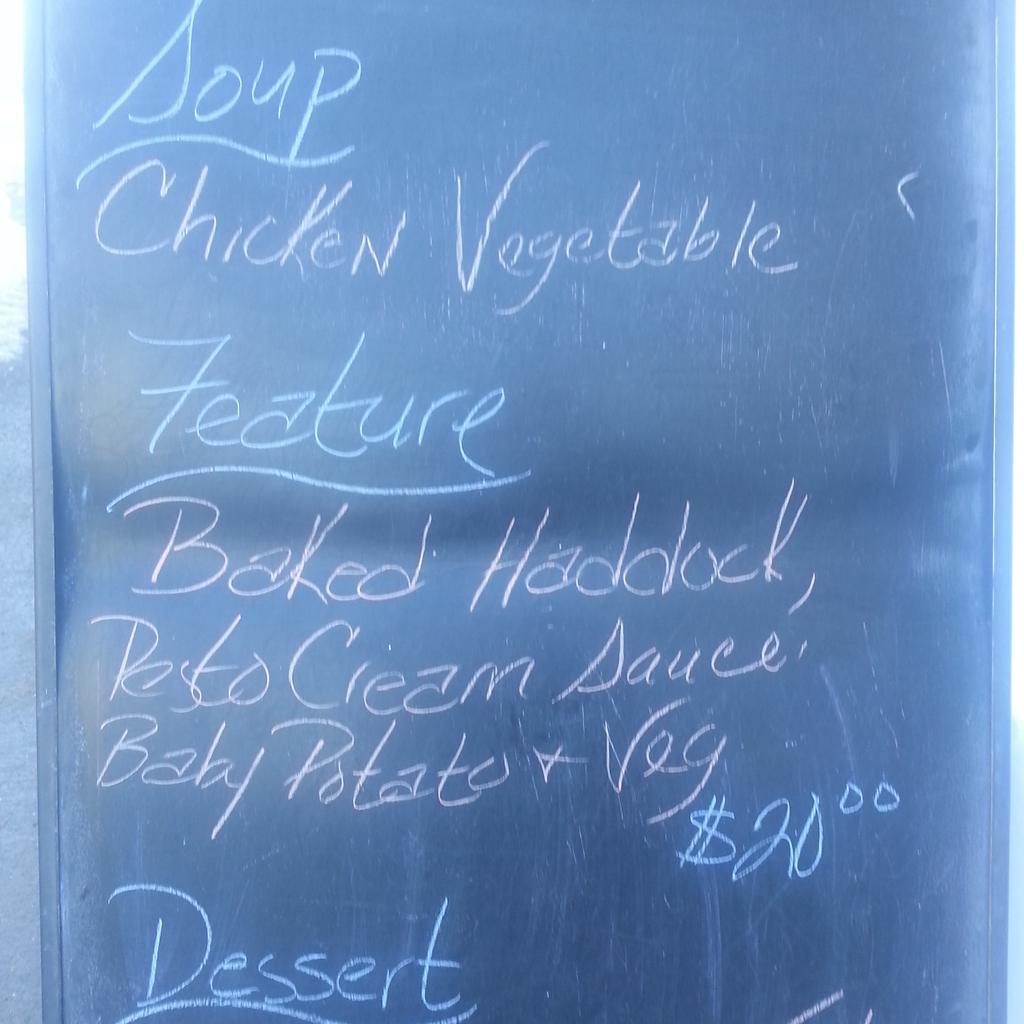 Soup
Chicken Vegetable
Feature
Baked Haddock,
Pesto Cream Sauce,
Baby Potato + Veg
$20.00
Dessert